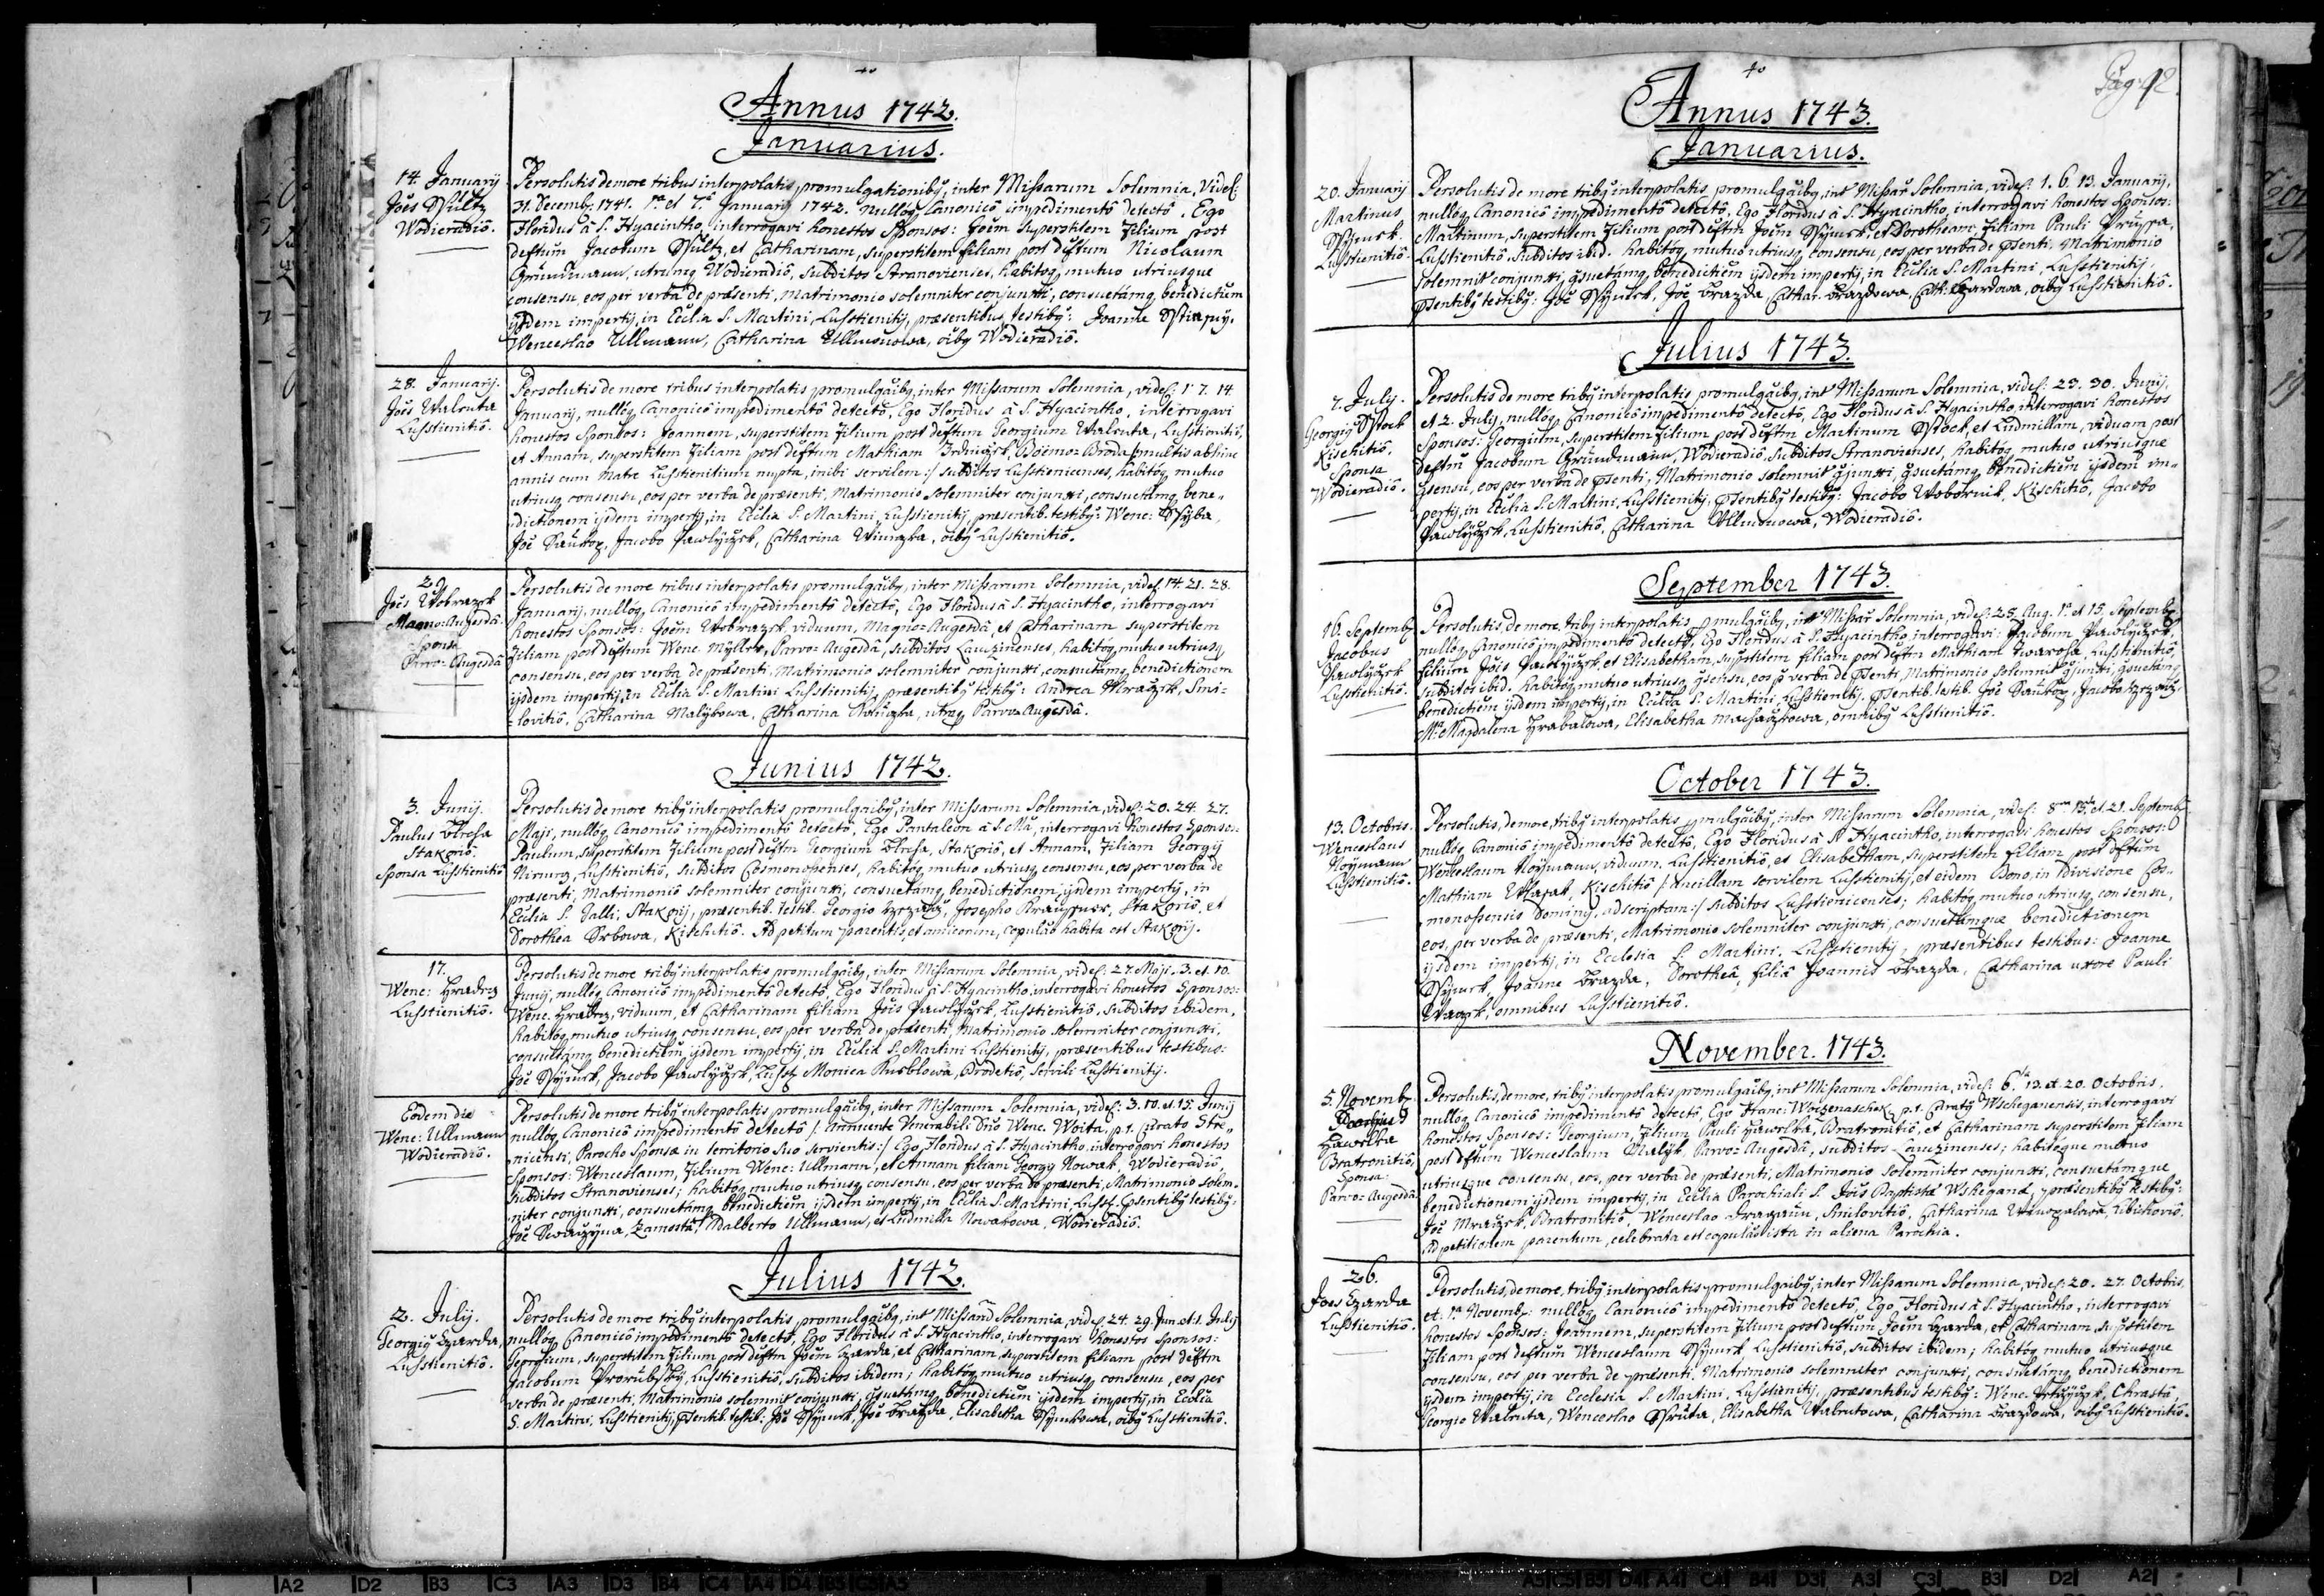 Annus 1742.
Januarius.
14. Januarij
Joes
Wodieradiô.
Persolutis de more tribus interpolatis promulgationibq, inter Missarum Solemnia, Videl:
31. Decemb: 1741. 1ª et 7ª Januarij 1742. nullôq Canonicô impedimentô detectô. Ego
Floridus à S. Hyacintho, interrogavi honestos Sponsos: Joem Superstitem Filium post
deftum Jacobum et Catharinam, superstitem filiam post deftum Nicolaum
Grundmann, utrumq Wodieradiô, subditos Stranovienses, habitoq mutuo utriusque
consensu, eos per verba de præsenti, Matrimonio solemniter conjunxi, consuetámq benedictum
ijsdem impertij, in Ecclia S. Martini, Luschtienitij, præsentibus testibq: Joanne
Wenceslao Ullmann, Catharina Ullmonowa, oibq Wodieradiô.
28. Januarij.
Joes Walenta
Luschtienitiô.
Persolutis de more tribus interpolatis promulgâibq, inter Missarum Solemnia, videl: 1ª 7. 14
Januarij, nullôq Canonicô impedimentô detectô, Ego Floridus à S. Hyacintho, interrogavi
honestos Sponsos: Joannem, superstitem Filium post deftum Georgium Walenta, Luschtienitiô,
et Annam, superstitem Filiam post deftum Mathiam Boëmo=Broda /:multis abhinc
annis cum Matre Luschtienitium nupta, inibi servilem:/ subditos Luschtienicenses, habitôq mutuo
utriusq consensu, eos per verba de præsenti, Matrimonio solemniter conjunxi, consuetámq bene=
=dictionem ijsdem impertij, in Ecclia S. Martini, Luschtienitij, præsentib. testibq: Wenc:
Joe Jacobo Pawlyczek, Catharina oibq Luschtienitiô.
29
Joes Wobrazek
Magno=Augesdâ
Sponsa
Parvo=Augesdâ
Persolutis de more tribus interpolatis promulgâibq, inter Missarum Solemnia, videl: 14. 21. 28.
Januarij, nullôq Canonicô impedimentô detectô, Ego Floridus à S. Hyacintho, interrogavi
honestos Sponsos: Joem Wobrazek viduum, Magno=Augesdâ, et Catharinam superstitem
Filiam post deftum Wenc. Parvo=Augesdâ, subditos Cauzinenses, habitôq mutuo utriusq
consensu, eos per verba de præsenti, Matrimonio solemniter conjunxi, consuetámq benedictionem
ijsdem impertij, in Ecclia S. Martini Luschtienitij, præsentibq testibq: Andrea Mraczek, Smi=
=lovitiô, Catharina Malykowa, Catharina utraq Parvo=Augesdâ.
Junius 1742.
3. Junij.
Paulus
Stakoriô.
Sponsa Luschtienitiô
Persolutis de more tribq interpolatis promulgâibq, inter Missarum Solemnia, videl: 20. 24. 27.
Maji, nullôq Canonicô impedimentô detectô, Ego Pantaleon à S. Mâ, interrogavi honestos Sponsos:
Paulum, superstitem Filium post deftm Georgium Stakoriô, et Annam, Filiam Georgij
Luschtienitiô, subditos Cosmonosenses, habitôq mutuo utriusq consensu, eos per verba de
præsenti, Matrimonio solemniter conjunxi, consuetámq benedictionem ijsdem impertij, in
Ecclia S. Galli, Stakorij, præsentib. testib. Georgio Josepho Stakoriô, et
Dorothea Srbowa, Kischitiô. Ad petitum parentis, et amicorum, copulâo habita est Stakorij.
17.
Wenc: Hradecz
Luschtienitiô.
Persolutis de more tribq interpolatis promulgâibq, inter Missarum Solemnia, videl: 27. Maji. 3. et 10.
Junij, nullôq Canonicô impedimentô detectô, Ego Floridus à S. Hyacintho interrogavi honestos Sponsos:
Wenc. Hradecz, viduum, et Catharinam filiam Jois Pawlyczek, Luschtienitiô, subditos ibidem,
habitôq mutuo utriusq consensu, eos per verba de præsenti Matrimonio solemniter conjunxi,
consuetámq benedictiem ijsdem impertij, in Ecclia S. Martini Luschtienitij, præsentibus testibus:
Joe Jacobo Pawlyczek, Luscht: Monica Brodetiô, servili Luschtienitij.
Eodem die
Wenc: Ullmann
Wodieradiô.
Persolutis de more tribq interpolatis promulgâibq, inter Missarum Solemnia, videl: 3. 10. et 15. Junij
nullôq Canonicô impedimentô detectô /: Annuente Venerabili Dno Wenc. Woita, p. t. Curato Stre=
=nicensi, Parocho Sponsæ in territorio suo servientis:/ Ego Floridus à S. Hyacintho, interrogavi honestos
Sponsos: Wenceslaum, Filium Wenc: Ullmann, et Annam filiam Georgij Nowak, Wodieradiô,
subditos Stranovienses; habitôq mutuo utriusq consensu, eos per verba de præsenti, Matrimonio solem=
=niter conjunxi, consuetámq benedictiem ijsdem impertij, in Ecclia S. Martini, Luscht: præsentibq testibq:
Joe Adalberto Ullmann, et Ludmilla Nowakowa, Wodieradiô.
Julius 1742.
2. Julij.
Georgiq Czarda,
Luschtienitiô.
Persolutis de more tribq interpolatis promulgâibq, int Missarum Solemnia, videl: 24. 29. Jun. et 1. Julij
nullôq Canonicô impedimentô detectô, Ego Floridus à S. Hyacintho, interrogavi honestos sponsos:
Georgium, superstitem Filium post deftm Joem Czarda, et Catharinam, superstitem filiam post deftm
Jacobum Luschtienitiô, subditos ibidem; habitôq mutuo utriusq consensu, eos per
verba de præsenti, Matrimonio solemnit conjunxi, consuetámq benedictiem ijsdem impertij, in Ecclia
S. Martini, Luschtienitij, præsentib. testib: Joe Joe Brazda, Elisabetha oibq Luschtienitiô.
Pag: 42.
Annus 1743.
Januarius.
20. Januarij
Martinus
Luschtienitiô.
Persolutis de more tribq interpolatis promulgâibq, int Missar Solemnia, videl: 1. 6. 13. Januarij,
nullôq Canonicô impedimentô detectô, Ego Floridus à S. Hyacintho, interrogavi honestos Sponsos:
Martinum, superstitem Filium post deftm Joem et Dorotheam, Filiam Pauli
Luschtienitiô, subditos ibid. habitôq mutuo utriusq consensu, eos per verba de præsenti, Matrimonio
solemnit conjunxi, consuetámq benedictiem ijsdem impertij, in Ecclia S. Martini, Luschtienitij,
præsentibq testibq: Joe Joe Brazda, Cathar. Brazdowa, Cath: Czardowa, oibq Luschtienitiô.
Julius 1743.
7. July.
Georgiq
Kischitiô,
Sponsa
Wodieradiô.
Persolutis de more tribq interpolatis promulgâibq, int Missarum Solemnia, videl: 23. 30. Junij,
et 2. Julij, nullôq Canonicô impedimentô detectô, Ego Floridus à S. Hyacintho, interrogavi honestos
Sponsos: Georgium, superstitem Filium post deftm Martinum et Ludmillam, viduam post
deftm Jacobum Grundmann, Wodieradiô, subditos Stranovienses, habitôq mutuo utriusque
consensu, eos per verba de præsenti, Matrimonio solemnit conjunxi, consuetámq benedictiem ijsdem im=
pertij, in Ecclia S. Martini, Luschtienitij, præsentibq testibq: Jacobo Wobornik, Kischitiô, Jacobo
Pawlyczek, Luschtienitiô, Catharina Ullmonowa, Wodieradiô.
September 1743.
16. Septemb
Jacobus
Pawlyczek
Luschtienitiô.
Persolutis, de more, tribq interpolatis promulgâibq, int Missar Solemnia, videl: 25. Aug. 1ª et 15. Septemb
nullôq Canonicô impedimentô detectô, Ego Floridus à S. Hyacintho, interrogavi: Jacobum Pawlyczek,
filium Jois Pawlyczek, et Elisabetham, superstitem filiam post deftm Mathiam Luschtienitiô,
subditos ibid. habitôq mutuo utriusq consensu, eos per verba de præsenti, Matrimonio solemnit conjunxi, consuetámq
benedictiem ijsdem impertij, in Ecclia S. Martini, Luschtienitij, præsentib. testib. Joe Jacobo
Mª Magdalena Hrabalowa, Elisabetha omnibq Luschtienitiô.
October 1743.
13. Octobris.
Wenceslaus
Noÿmann
Luschtienitiô.
Persolutis, de more, tribq interpolatis promulgâibq, inter Missarum Solemnia, videl: 8va 15. et 21. Septemb
nullôq Canonicô impedimentô detectô, Ego Floridus à S. Hyacintho, interrogavi honestos Sponsos:
Wenceslaum Noÿmann, viduum, Luschtienitiô, et Elisabetham, superstitem filiam post deftum
Mathiam Kischitiô /: ancillam servilem Luschtienitij, et eidem Dono, in Divisione Cos=
monosensis Dominij, adscriptam:/ subditos Luschtienicenses; habitôq mutuo utriusq consensu,
eos, per verba de præsenti, Matrimonio solemniter conjunxi, consuetámque benedictionem
ijsdem impertij, in Ecclesia S. Martini, Luschtienitij, præsentibus testibus: Joanne
Joanne Brazda, Dorotheâ, filiâ Joannis Brazda, Catharina uxore Pauli
omnibus Luschtienitiô.
November. 1743.
5. Novemb
Georgius
Hawelka
Bratronitiô,
Sponsa
Parvo=Augesdâ
Persolutis, de more, tribq interpolatis promulgâibq, int Missarum Solemnia, videl: 6ta 13. et 20. Octobris,
nullôq Canonicô impedimentô detectô, Ego Franc: p. t. Curatq Wscheganensis, interrogavi
honestos Sponsos: Georgium, Filium Pauli Hawelka, Bratronitiô, et Catharinam superstitem Filiam
post deftum Wenceslaum Parvo=Augesdâ, subditos Cauzinenses; habitôque mutuo
utriusque consensu, eos, per verba de præsenti, Matrimonio Solemniter conjunxi, consuetámque
benedictionem ijsdem impertij, in Ecclia Parochiali S. Jois Baptistæ Wshegand, præsentibq testibq:
Joe Mraczek, Bratronitiô, Wenceslao Smilovitiô, Catharina
Ad petitionem parentum, celebrata est copulâo ista in aliena Parochia.
26.
Joes Czarda
Luschtienitiô.
Persolutis, de more, tribq interpolatis promulgâibq, inter Missarum Solemnia, videl: 20. 27. Octobris,
et 1ª Novemb: nullôq Canonicô impedimentô detectô, Ego Floridus à S. Hyacintho, interrogavi
honestos Sponsos: Joannem, superstitem Filium post deftum Joem Czarda, et Catharinam, superstitem
Filiam post deftum Wenceslaum Luschtienitiô, subditos ibidem; habitôq mutuo utriusque
consensu, eos per verba de præsenti, Matrimonio solemniter conjunxi, consuetámq benedictionem
ijsdem impertij, in Ecclesia S. Martini, Luschtienitij, præsentibus testibq: Wenc. Chrastô,
Georgio Walenta, Wenceslao Elisabetha Walentowa, Catharina Brazdowa, oibq Luschtienitiô.
A2 D2 B3 C3 A3 D3 B4 C4 A4 D4 B5 C5 A5
A5 C5 B5 D4 A4 C4 B4 D3 A3 C3 B3 D2 A2